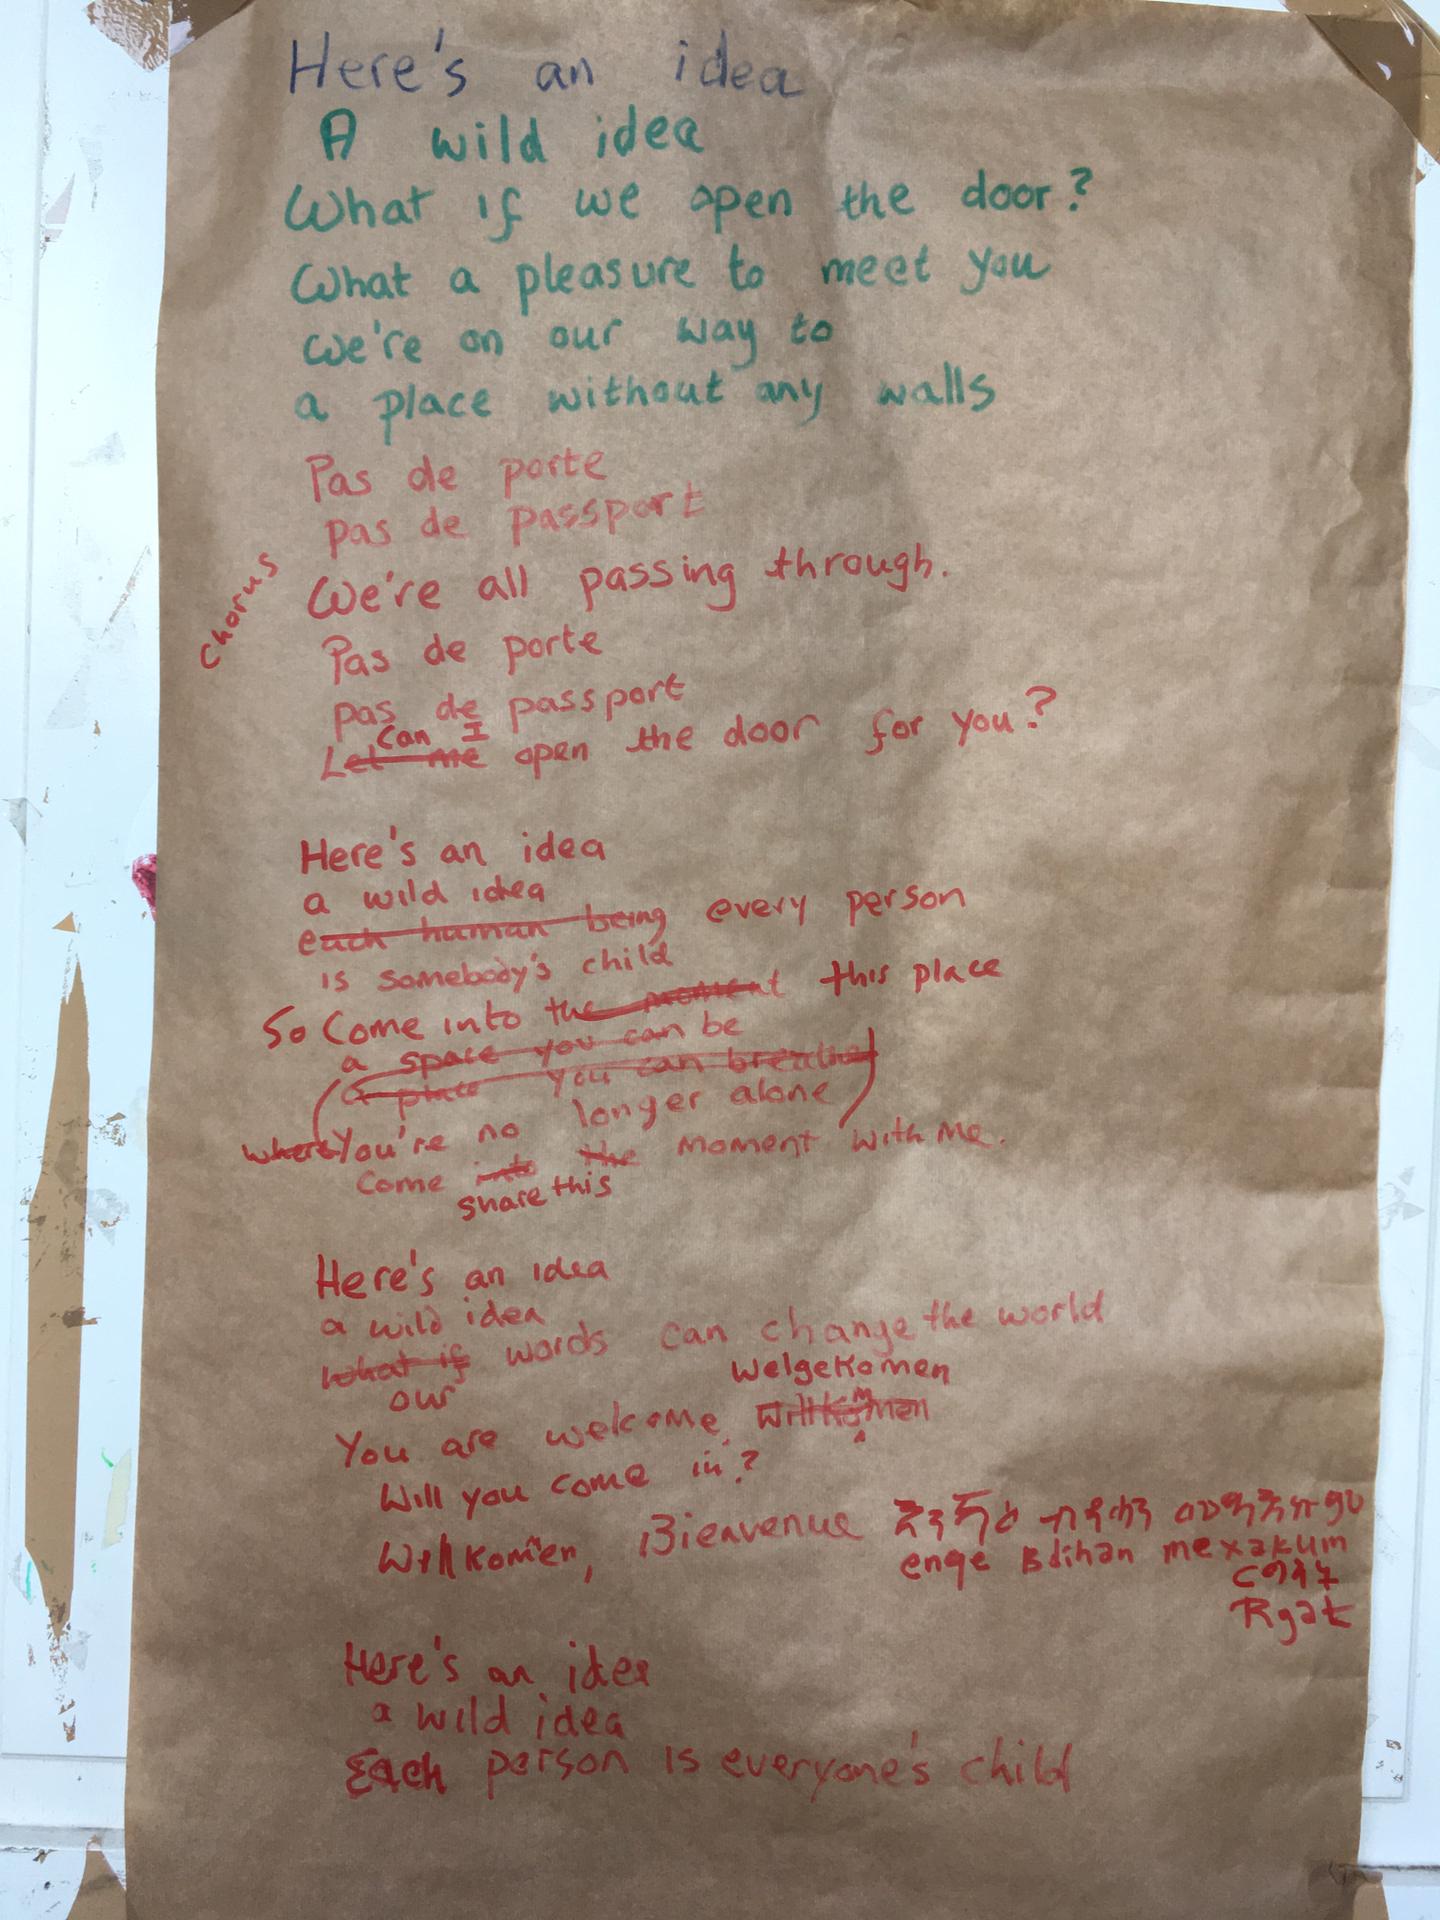 Here's an idea
A wild idea
What if we open the door?
What a pleasure to meet you
we're on our way to
a place without any walls
Pas de porte
pas de passport
Chorus
We're all passing through.
Pas de porte
pas de passport
Can I
Let me open the door for you?
Here's an idea
a wild idea
each human being every person
is somebody's child
So Come into the moment this place
a space you can be
a place you can breathe
where You're no longer alone
Come into the moment with me.
share this
Here's an idea
a wild idea
What if words can change the world
our
welgekomen
You are welcome, Willkommen
Will you come in?
Willkomen, Bienvenue
enqe Bdihan mexakum
Rgat
Here's an idea
a wild idea
Each person is everyone's child